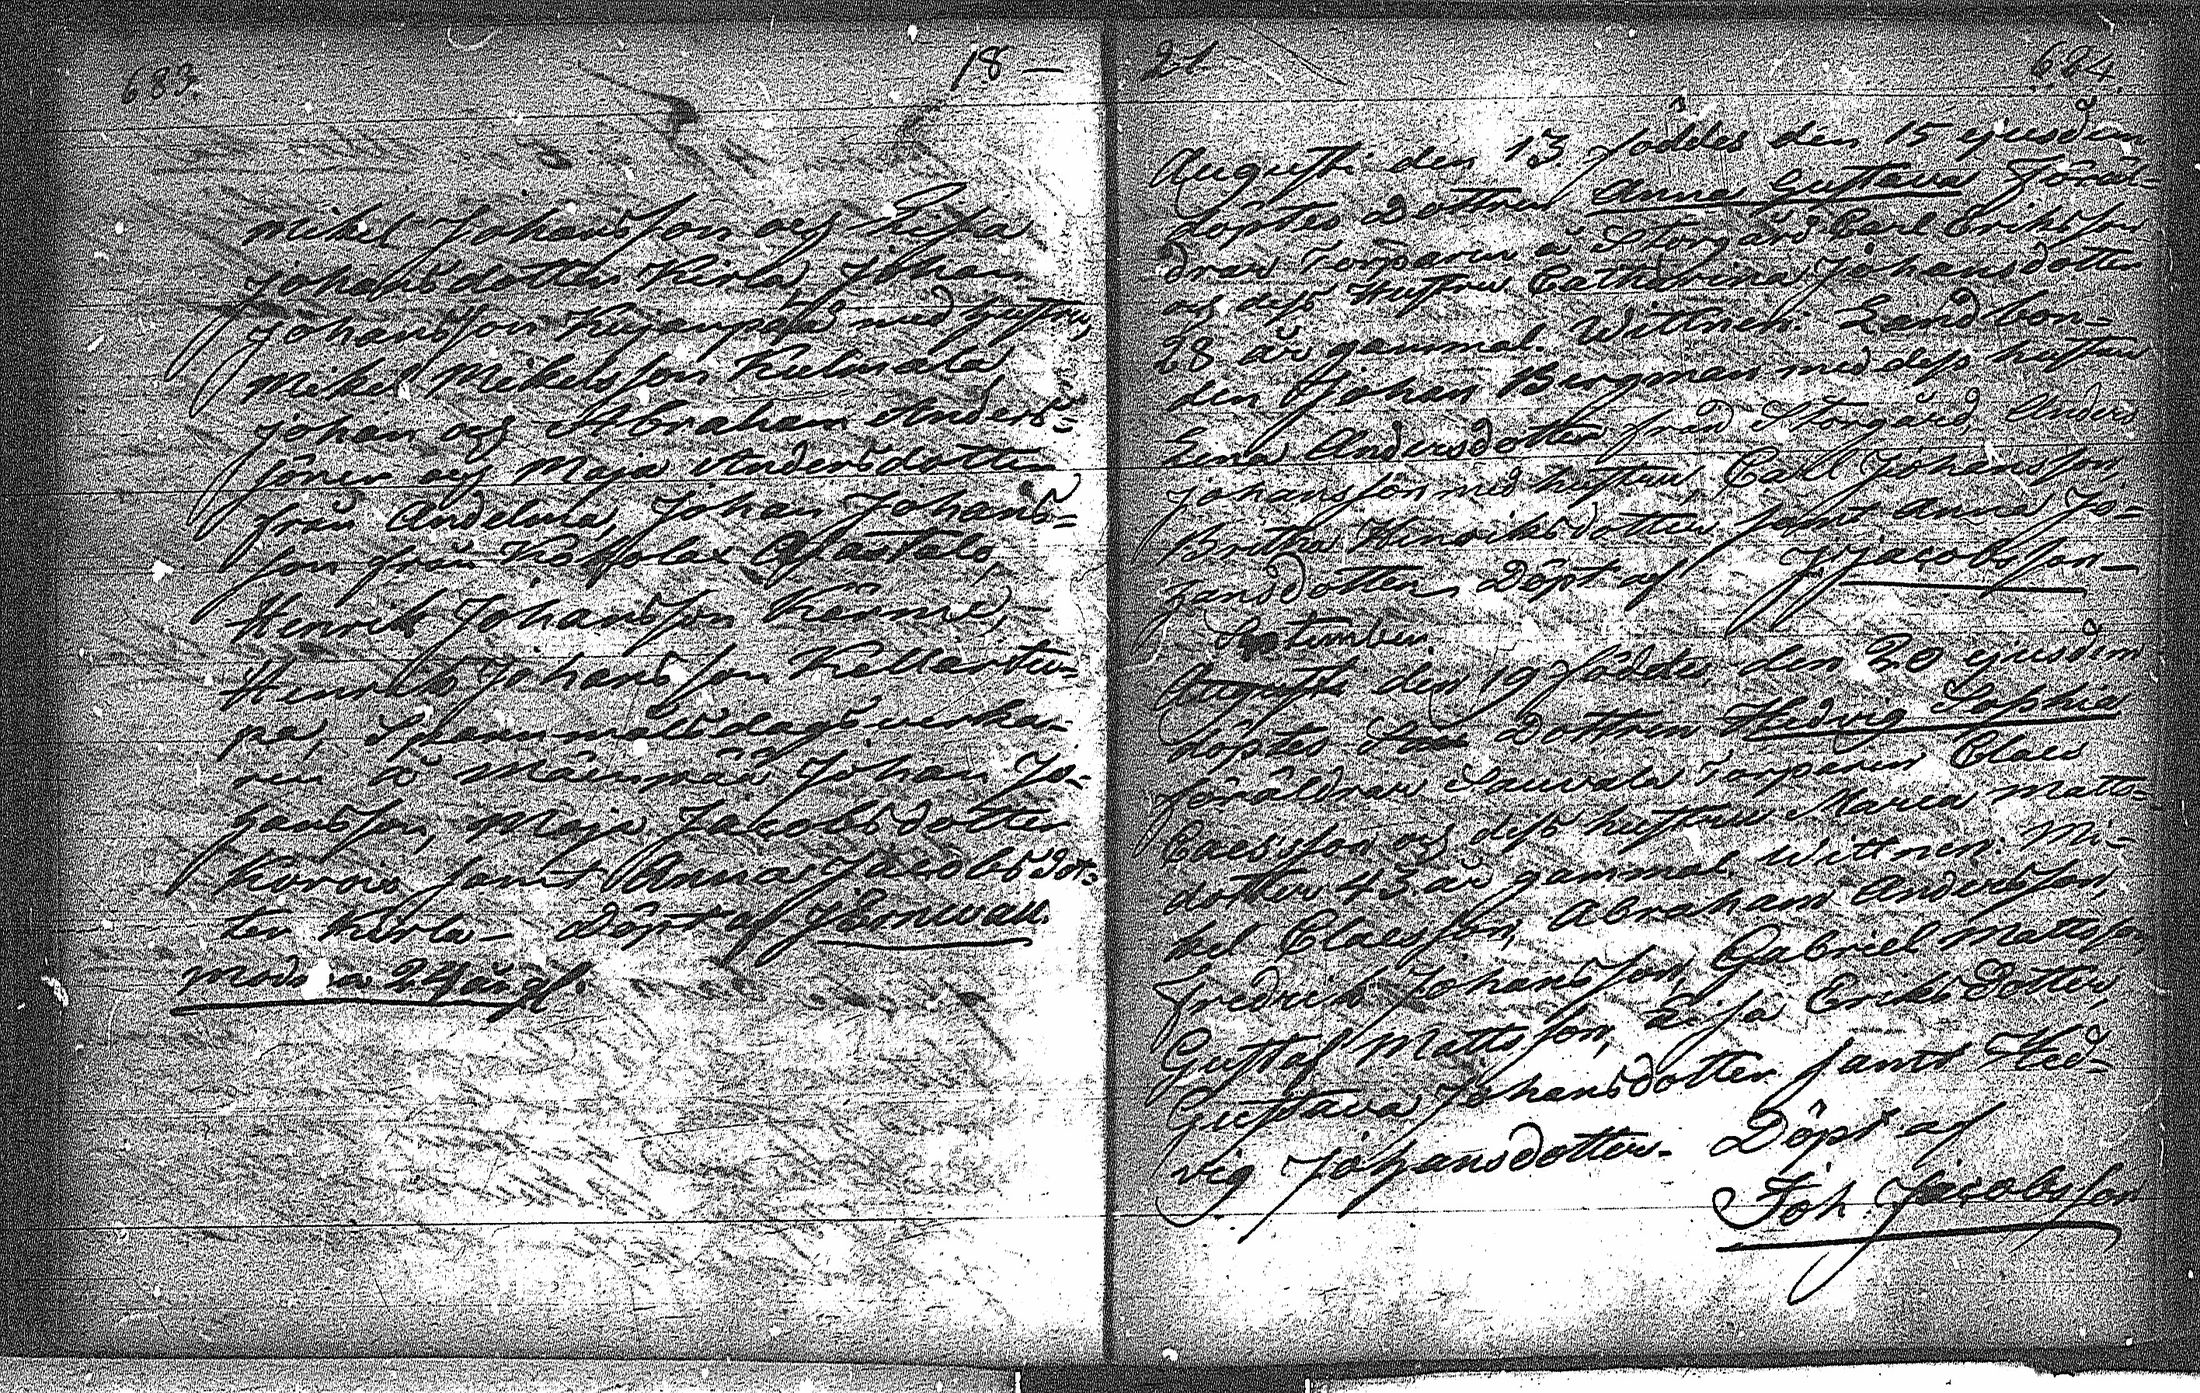 683.
18 —
Mikel Johansson och Lisa
Johansdotter Kirla, Johan
Johansson med hustru,
Mikel Mikelsson
Johan och Abraham Anders=
söner och Maja Andersdotter
från Andelma, Johan Johans=
son från
Henrik Johansson
Henrik Johansson Kellartu-
pa,
ren å Johan Jo-
hansson, Maja Jacobsdotter
Korois samt Anna Jacobsdot-
ter Kirla — Döpt af
Modren 24 år gl.
21
684.
Augusti den 13 föddes den 15 ejusdem
döptes Dottren Anna Gustava Föräl-
drar Torparen å Storgård Carl Eriksson
och dess Hustru Catharina Johansdotter
28 år gammal. Wittnen: Landbon-
den Johan Bergman med dess hustru
Lena Andersdotter från Storgård, Anders
Johansson med hustru, Call Johansson
Britha Henriksdotter samt Anna Jo-
hansdotter, Döpt af J Jacobsson —
September
Augusti den 19 föddes, den 20 ejusdem
döptes Dottren Hedvig Sophia
föräldrar Sauvala Torparen Claes
Claesson och dess hustru Maria Matts-
dotter 43 år gammal. Wittnen: Mi-
kel Claesson, Abraham Andersson,
Fredrik Johansson, Gabriel Mattsson
Gustaf Mattsson, Lisa Eriksdotter,
Gustava Johansdotter samt Hed-
vig Johansdotter. Döpt af
Joh Jacobsson